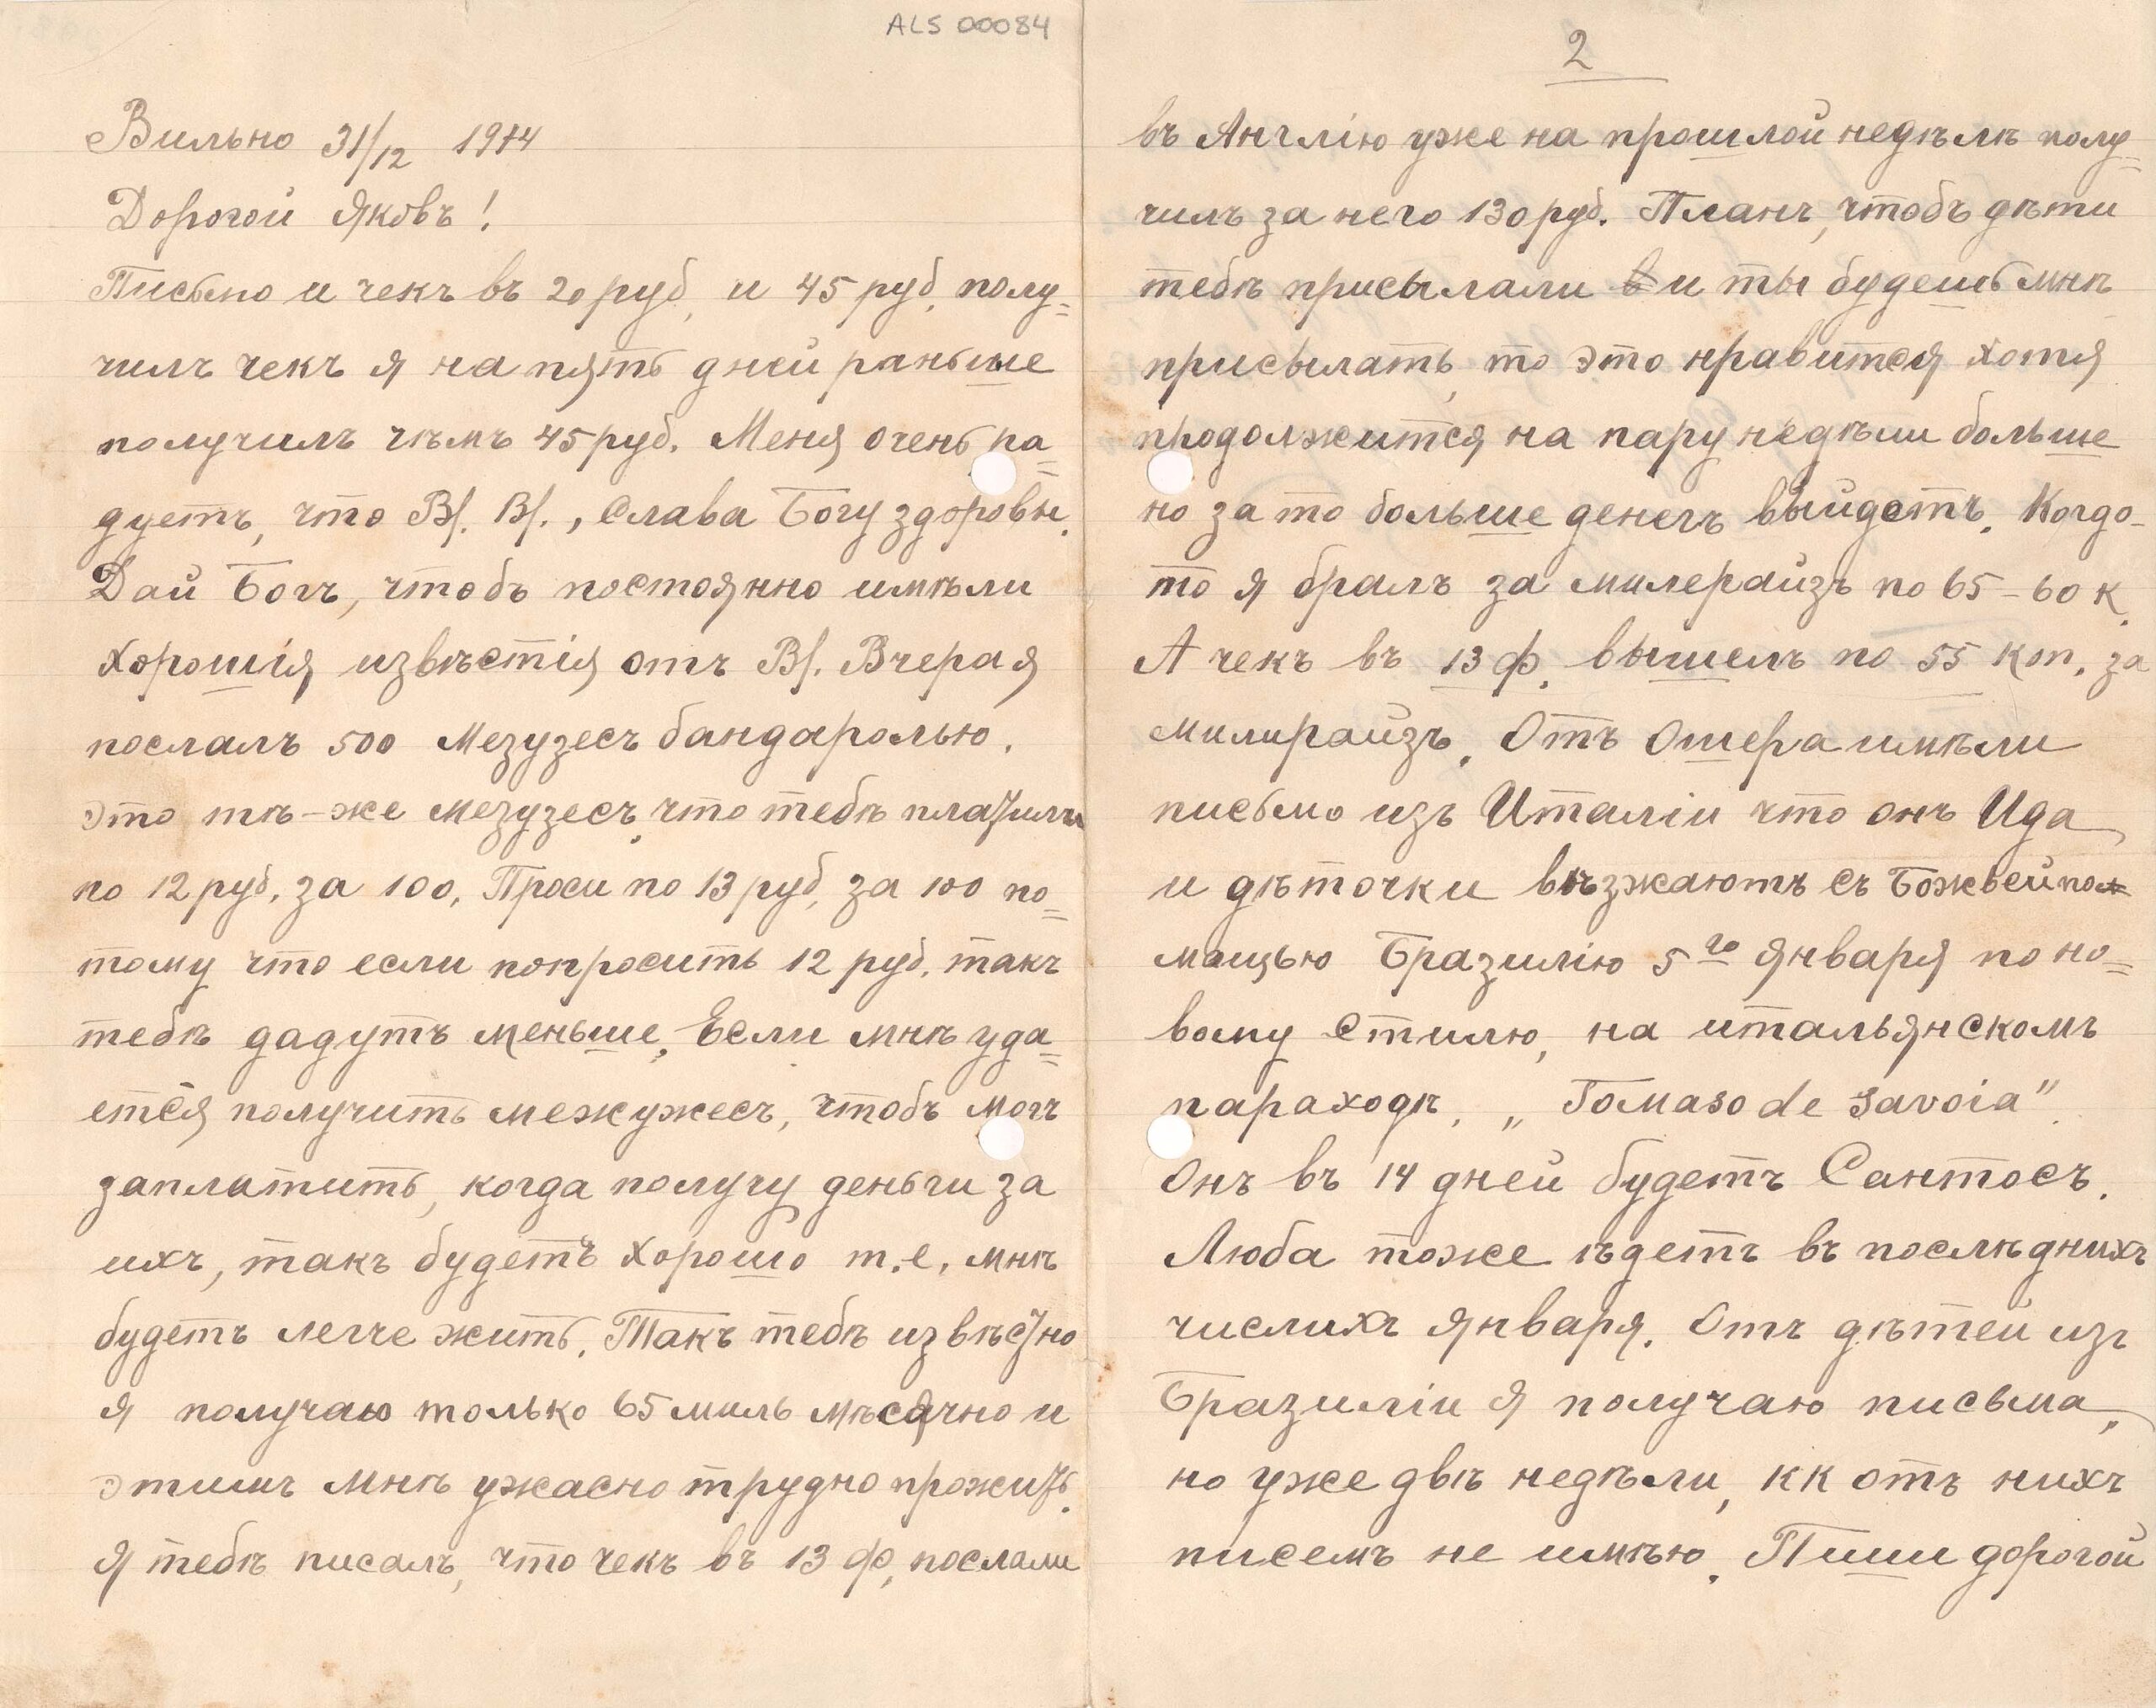 ALS 00084
Вильно 31/12 1914
Дорогой Яковъ!
Письмо и чекъ въ 20 руб, и 45 руб, полу=
чилъ чекъ я на пять дней раньше
получилъ чѣмъ 45 руб. Меня очень ра=
дуетъ, что Вſ. Вſ., Слава Богу здоровы.
Дай Богъ, чтобъ постоянно имѣли
хорошія извѣстія отъ Вſ. Вчера я
послалъ 500 Мезузесъ бандаролью.
это тѣ-же Мезузесъ, что тебѣ платили
по 12 руб. за 100, Проси по 13 руб, за 100 по=
тому что если попросить 12 руб. такъ
тебѣ дадутъ меньше, Если мнѣ уда=
ется получить межужесъ, чтобъ могъ
заплатить, когда получу деньги за
ихъ, такъ будетъ хорошо т.е. мнѣ
будетъ легче жить. Такъ тебѣ извѣстно
я получаю только 65 миль мѣсячно и
этимъ мнѣ ужасно трудно прожить.
Я тебѣ писалъ, что чекъ въ 13 ф, послали
2
въ Англію уже на прошлой недѣлѣ полу=
чилъ за него 130 руб. Планъ, чтобъ дѣти
тебѣ присылали и ты будешь мнѣ
присылать, то это нравится хотя
продолжится на пару недѣли больше
но за то больше денегъ выйдетъ. Когдо-
то я бралъ за милерайзъ по 65-60 к.
А чекъ въ 13 ф. вышелъ по 55 коп. за
милирайзъ. Отъ Ошера имѣли
письмо изъ Италіи что онъ Ида
и дѣточки вѣзжаютъ съ Божьей по
мощью Бразилію 5го Января по но=
вому стилю, на итальянскомъ
параходѣ, „Томаso de Savoia"
Онъ въ 14 дней будетъ Сантосъ.
Люба тоже ѣдетъ въ послѣднихъ
числихъ Января. Отъ дѣтей изъ
Бразиліи я получаю письма,
но уже двѣ недѣли, кк отъ нихъ
писемъ не имѣю. Пиши дорогой